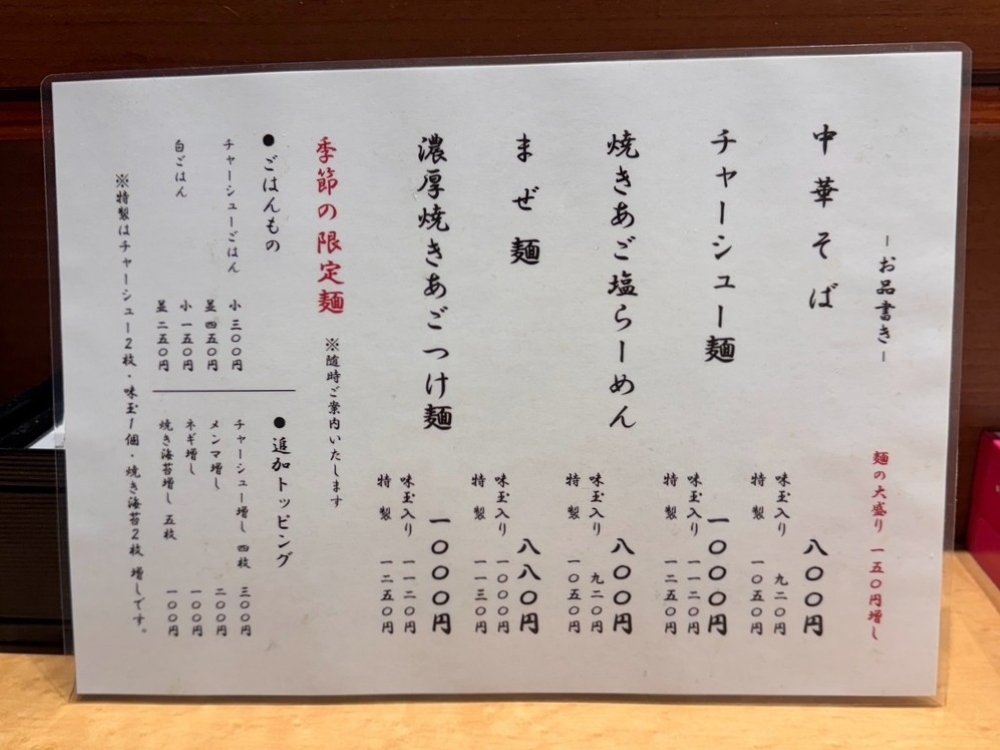 －お品書き－
麺の大盛り 一五〇円増し
中華そば 八〇〇円
味玉入り 九二〇円
特製 一〇五〇円
チャーシュー麺 一〇〇〇円
味玉入り 一一二〇円
特製 一二五〇円
焼きあご塩らーめん 八〇〇円
味玉入り 九二〇円
特製 一〇五〇円
まぜ麺 八八〇円
味玉入り 一〇〇〇円
特製 一一三〇円
濃厚焼きあごつけ麺 一〇〇〇円
味玉入り 一一二〇円
特製 一二五〇円
季節の限定麺 ※随時ご案内いたします
●ごはんもの
チャーシューごはん 小 三〇〇円
並 四五〇円
白ごはん 小 一五〇円
並 二五〇円
●追加トッピング
チャーシュー増し 四枚 三〇〇円
メンマ増し 二〇〇円
ネギ増し 一〇〇円
焼き海苔増し 五枚 一〇〇円
※特製はチャーシュー2枚・味玉1個・焼き海苔2枚 増しです。